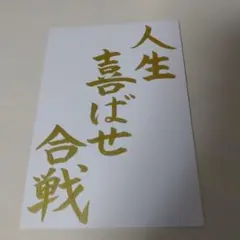 人生
喜ばせ
合戦